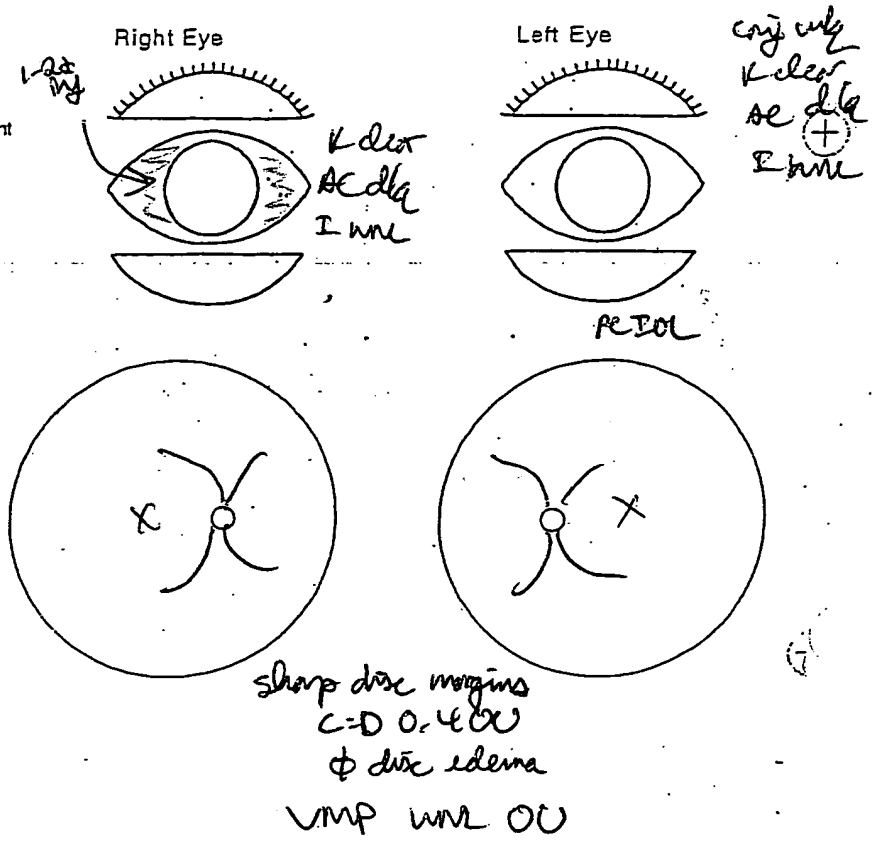 Right Eye
Left Eye
nt
1-2+
inj
K clear
AC d/q
I wnl
conj w&q
K clear
AC d/q
I wnl
PC IOL
sharp disc margins
C:D 0.4 OU
φ disc edema
VMP wnl OU